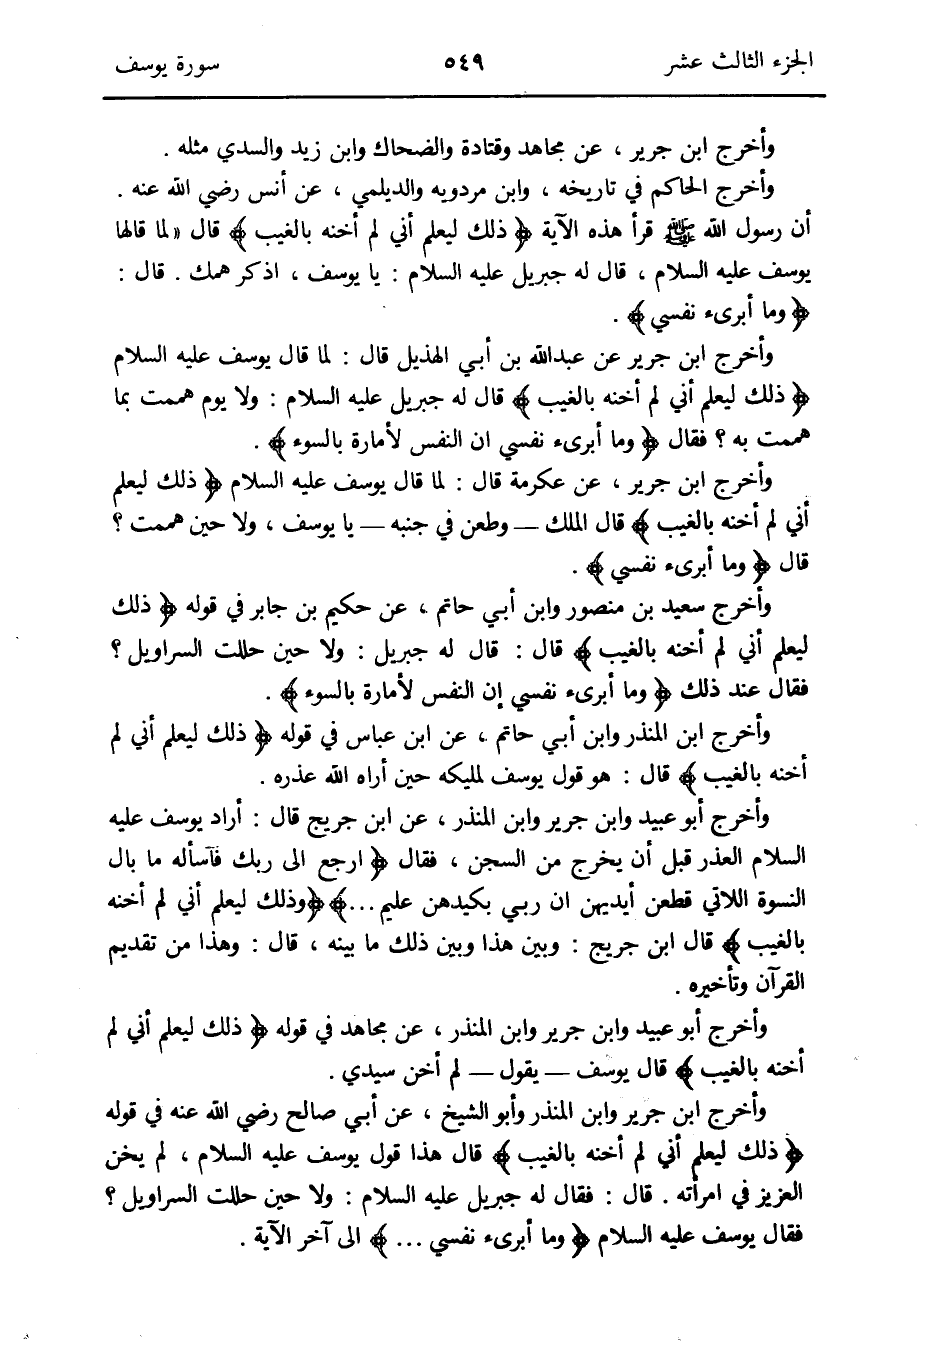 الجزء الثالث عشر
٥٤٩
سورة يوسف
وأخرج ابن جرير ، عن مجاهد وقتادة والضحاك وابن زيد والسدي مثله .
وأخرج الحاكم في تاريخه ، وابن مردويه والديلمي ، عن أنس رضي الله عنه .
أن رسول الله ﷺ قرأ هذه الآية ﴿ ذلك ليعلم أني لم أخنه بالغيب ﴾ قال «لما قالها
يوسف عليه السلام ، قال له جبريل عليه السلام : يا يوسف ، اذكر همك . قال :
﴿ وما أبرىء نفسي ﴾ .
وأخرج ابن جرير عن عبدالله بن أبي الهذيل قال : لما قال يوسف عليه السلام
﴿ ذلك ليعلم أني لم أخنه بالغيب ﴾ قال له جبريل عليه السلام : ولا يوم هممت بما
هممت به ؟ فقال ﴿ وما أبرىء نفسي ان النفس لأمارة بالسوء ﴾ .
وأخرج ابن جرير ، عن عكرمة قال : لما قال يوسف عليه السلام ﴿ ذلك ليعلم
أني لم أخنه بالغيب ﴾ قال الملك — وطعن في جنبه — يا يوسف ، ولا حين هممت ؟
قال ﴿ وما أبرىء نفسي ﴾ .
وأخرج سعيد بن منصور وابن أبي حاتم ، عن حكيم بن جابر في قوله ﴿ ذلك
ليعلم أني لم أخنه بالغيب ﴾ قال : قال له جبريل : ولا حين حللت السراويل ؟
فقال عند ذلك ﴿ وما أبرىء نفسي إن النفس لأمارة بالسوء ﴾ .
وأخرج ابن المنذر وابن أبي حاتم ، عن ابن عباس في قوله ﴿ ذلك ليعلم أني لم
أخنه بالغيب ﴾ قال : هو قول يوسف لمليكه حين أراه الله عذره .
وأخرج أبو عبيد وابن جرير وابن المنذر ، عن ابن جريج قال : أراد يوسف عليه
السلام العذر قبل أن يخرج من السجن ، فقال ﴿ ارجع الى ربك فآسأله ما بال
النسوة اللاتي قطعن أيديهن ان ربي بكيدهن عليم ...﴾ ﴿وذلك ليعلم أني لم أخنه
بالغيب ﴾ قال ابن جريج : وبين هذا وبين ذلك ما بينه ، قال : وهذا من تقديم
القرآن وتأخيره .
وأخرج أبو عبيد وابن جرير وابن المنذر ، عن مجاهد في قوله ﴿ ذلك ليعلم أني لم
أخنه بالغيب ﴾ قال يوسف — يقول — لم أخن سيدي .
وأخرج ابن جرير وابن المنذر وأبو الشيخ ، عن أبي صالح رضي الله عنه في قوله
﴿ ذلك ليعلم أني لم أخنه بالغيب ﴾ قال هذا قول يوسف عليه السلام ، لم يخن
العزيز في امرأته . قال : فقال له جبريل عليه السلام : ولا حين حللت السراويل ؟
فقال يوسف عليه السلام ﴿ وما أبرىء نفسي ... ﴾ الى آخر الآية .